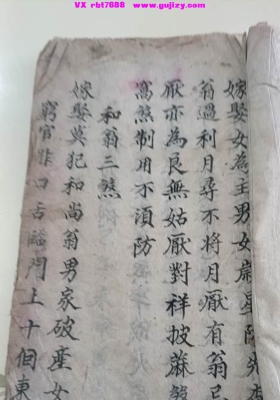 VX rbt7688 www.gujizy.com
嫁娶女為主男女歲星陰先
翁過利月尋不將月厭有翁忌
厭亦為良無姑厭對祥披蔴
窩煞制用不須防
和翁三煞
嫁娶莫犯和尚翁男家破產女
窮官非口舌臨門上十個東